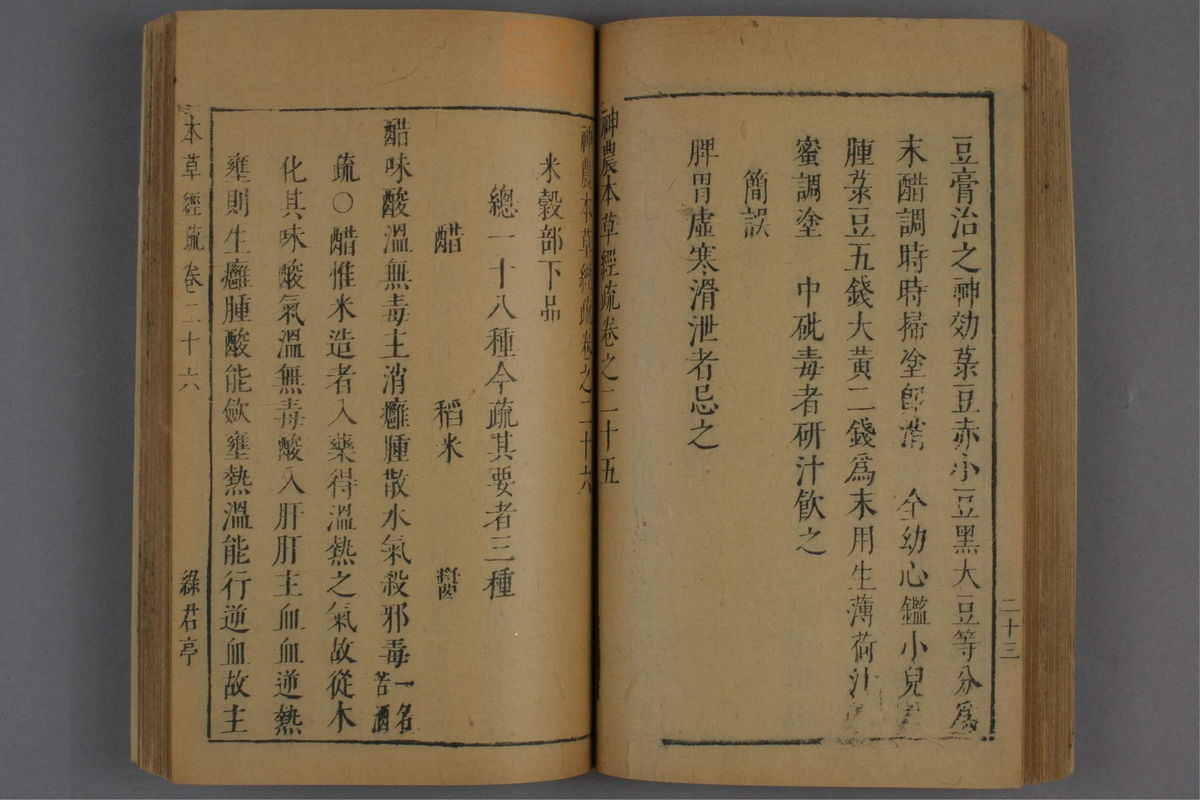 豆膏治之神効菉豆赤小豆黑大豆等分爲
末醋調時時掃塗卽消　全幼心鑑小兒
腫菉豆五錢大黃二錢爲末用生薄荷汁
蜜調塗　中砒毒者研汁飮之
簡誤
脾胃虛寒滑泄者忌之
神農本草經疏卷之二十五
二十三
神農本草經疏卷之二十六
米穀部下品
總一十八種今疏其要者三種
醋　稻米　醬
醋味酸溫無毒主消癰腫散水氣殺邪毒一名苦酒
疏○醋惟米造者入藥得溫熱之氣故從木
化其味酸氣溫無毒酸入肝肝主血血逆熱
壅則生癰腫酸能斂壅熱溫能行逆血故主
本草經疏　卷二十六　綠君亭